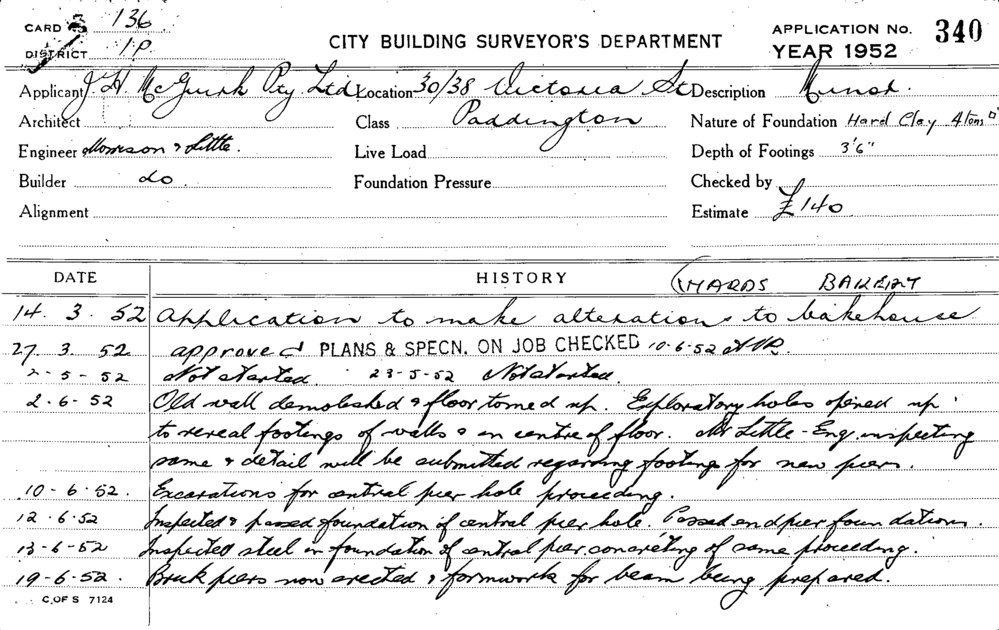 CARD 136
DISTRICT 1P.
CITY BUILDING SURVEYOR'S DEPARTMENT
APPLICATION No. 340
YEAR 1952
Applicant J. H. McGurk Pty. Ltd. Location 30/38 Victoria St Description Minor.
Architect Class Paddington Nature of Foundation Hard Clay 4 tons □'
Engineer Morrison & Little. Live Load Depth of Footings 3'6"
Builder do Foundation Pressure Checked by
Alignment Estimate £140
DATE HISTORY (WARDS BAKERY
14. 3. 52 Application to make alterations to bakehouse
27. 3. 52 approved PLANS & SPECN. ON JOB CHECKED 10-6-52
2-5-52 Not started. 23-5-52 Not started.
2.6-52 Old wall demolished & floor torned up. Exploratory holes opened up
to reveal footings of walls & in centre of floor. Mr Little - Eng. inspecting
same & detail will be submitted regarding footings for new piers.
10-6-52. Excavations for central pier hole proceeding.
12.6.52 Inspected & passed foundation of central pier hole. Passed end pier foundations.
13-6-52 Inspected steel in foundation of central pier, concreting of same proceeding.
19-6-52. Brick piers now erected & formwork for beam being prepared.
C.OF S 7124